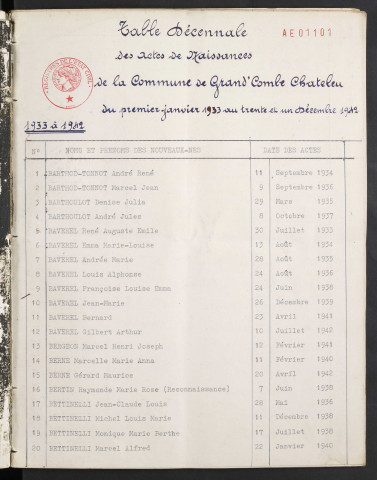 Table Décennale
AE01101
des Actes de Naissances
de la Commune de Grand'Combe Chateleu
du premier janvier 1933 au trente et un Décembre 1942
1933 à 1942
N° NOMS ET PRENOMS DES NOUVEAUX-NES DATE DES ACTES
1 BARTHOD-TONNOT André René 11 Septembre 1934
2 BARTHOD-TONNOT Marcel Jean 9 Septembre 1936
3 BARTHOULOT Denise Julia 29 Mars 1935
4 BARTHOULOT André Jules 8 Octobre 1937
5 BAVEREL René Auguste Emile 30 Juillet 1933
6 BAVEREL Emma Marie-Louise 13 Août 1934
7 BAVEREL Andrée Marie 28 Août 1935
8 BAVEREL Louis Alphonse 24 Août 1936
9 BAVEREL Françoise Louise Emma 24 Juin 1938
10 BAVEREL Jean-Marie 26 Décembre 1939
11 BAVEREL Bernard 23 Avril 1941
12 BAVEREL Gilbert Arthur 10 Juillet 1942
13 Marcel Henri Joseph 12 Février 1941
14 BERNE Marcelle Marie Anna 11 Février 1940
15 BERNE Gérard Maurice 20 Avril 1942
16 BERTIN Raymonde Marie Rose (Reconnaissance) 7 Juin 1938
17 BETTINELLI Jean-Claude Louis 28 Mai 1936
18 BETTINELLI Michel Louis Marie 11 Décembre 1938
19 BETTINELLI Monique Marie Berthe 17 Juillet 1938
20 BETTINELLI Marcel Alfred 22 Janvier 1940